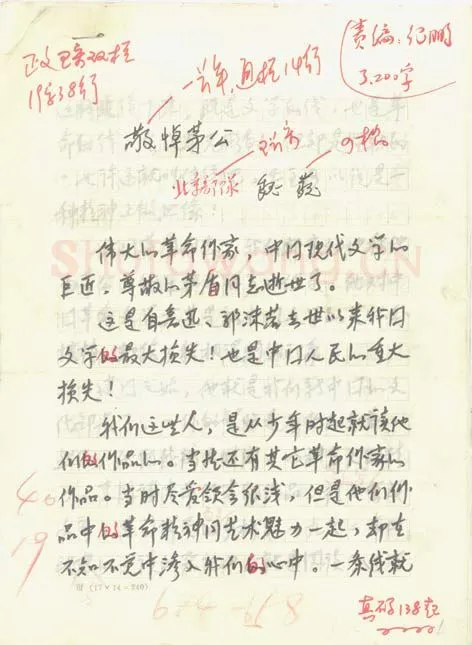 责编：纪鹏
3.200字
19行38行
敬悼茅公
伟大的革命作家，中国现代文学的
巨匠，尊敬的茅盾同志逝世了。
这是自鲁迅、郭沫若去世以来我国
文学的最大损失！也是中国人民的重大
损失！
我们这些人，是从少年时起就读他
们的作品的。当然还有其它革命作家的
作品。当时尽管领会很浅，但是他们作
品中的革命精神同艺术魅力一起，却在
不知不觉中渗入我们的心中。一条线就
40
19
(17×14=240)